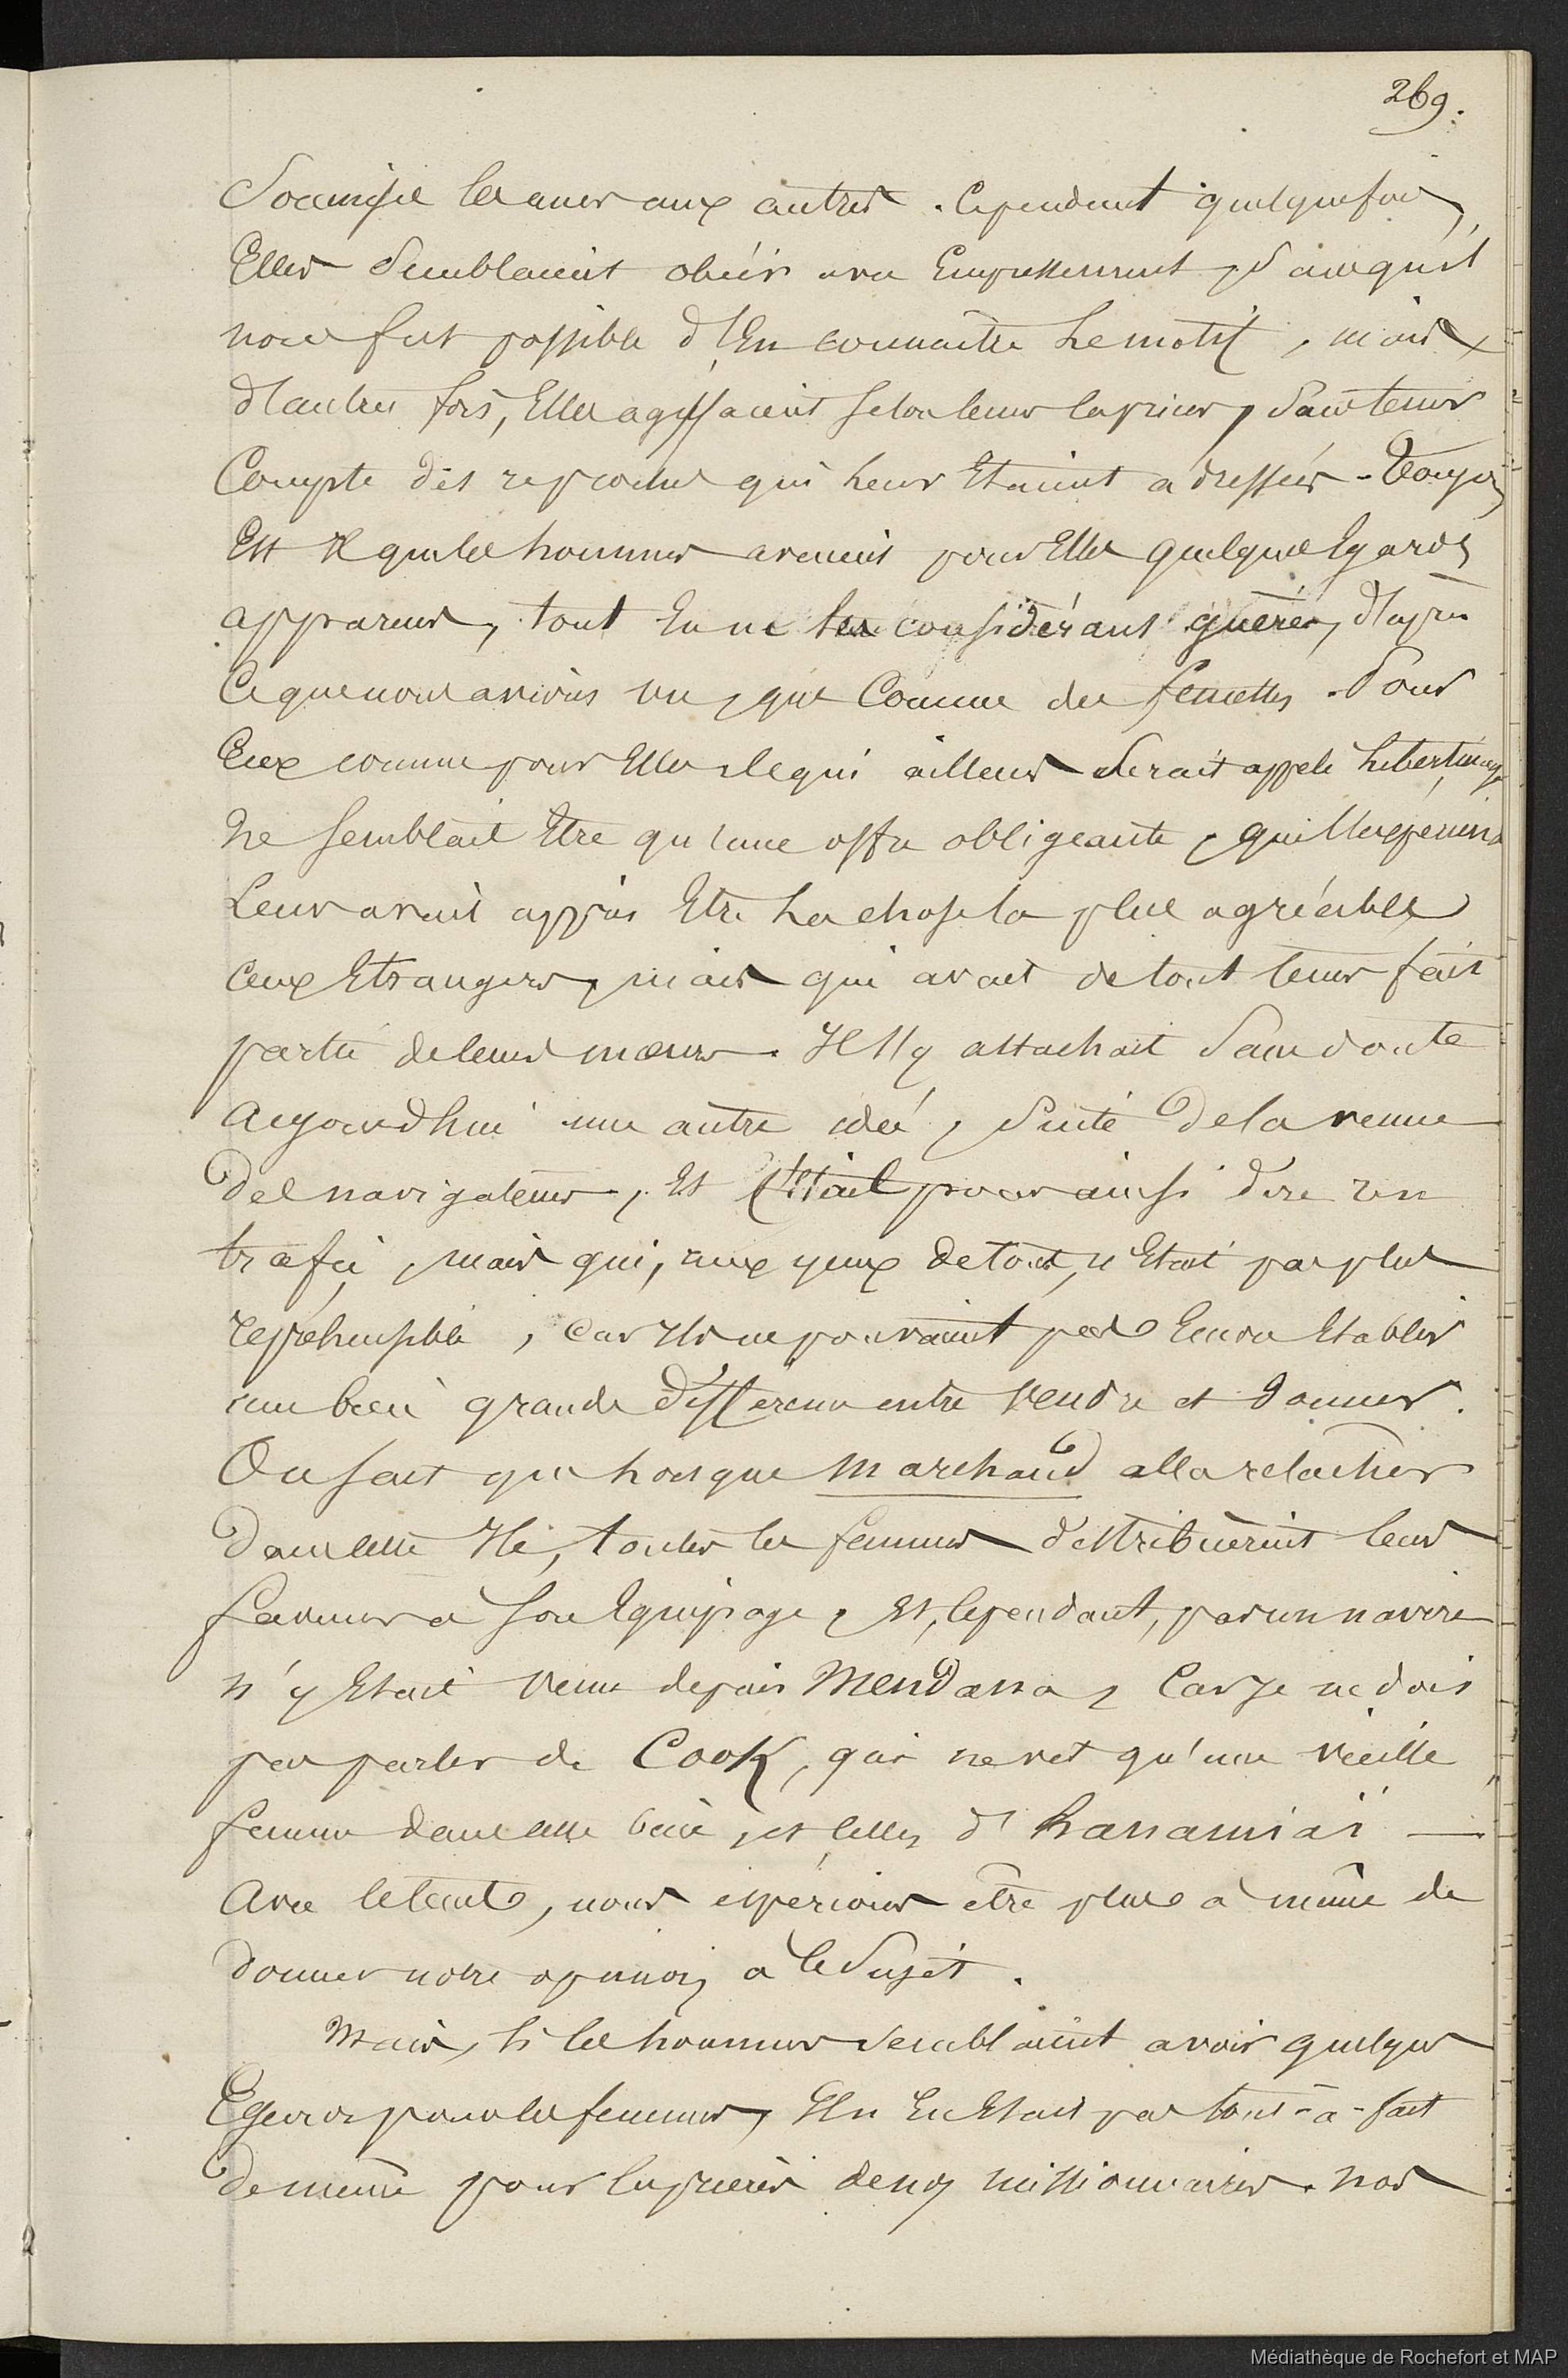 269.
Soumise les unes aux autres. Cependant quelquefois,
Elles Semblaient obéir avec Empressement, Sans qu'il
nous fut possible d'En connaitre Le motif, mais
d'autres fois, Elles agissaient selon leurs caprices, Sans tenir
Compte des reproches qui Leur Etaient adressés. Toujours
Est Il que les hommes avaient pour Elles quelques Egards
apparens, tout En ne les considérant guère, d'après
Ce que nous avions vu, que Comme des femelles. Pour
Eux comme pour Elles, ce qui ailleurs Serait appelé Libertinage
Ne semblait Etre qu'une offre obligeante, que l'Expérience
Leur avait appris Etre La chose la plus agréable
aux Etrangers, mais qui avait de tout tems fait
partie de leurs moeurs. Il s'y attachait Sans doute
aujourd'hui une autre idée, Suite de la venue
des navigateurs, Et C'était pour ainsi dire un
trafic, mais qui, aux yeux de tous, n'Etait pas plus
repréhensible, Car Ils ne pouvaient pas Encore Etablir
une bien grande différence entre Vendre et Donner.
On sait que Lorsque Marchand alla relacher
Dans cette Ile, toutes les femmes distribuèrent leurs
faveurs a son Equipage, Et, Cependant, pas un navire
n'y Etait Venu depuis Mendana, Car Je ne dois
pas parler de Cook, qui ne vit qu'une vieille
femme dans cette baie, et celles d'hanamiai —
Avec le tems, nous espérions être plus à même de
donner notre opinion à Ce Sujet.
Mais, Si les hommes Semblaient avoir quelques
Egards pour les femmes, Il n'En Etait pas tout-a-fait
De même pour les prières de nos missionnaires. Nos
Médiathèque de Rochefort et MAP